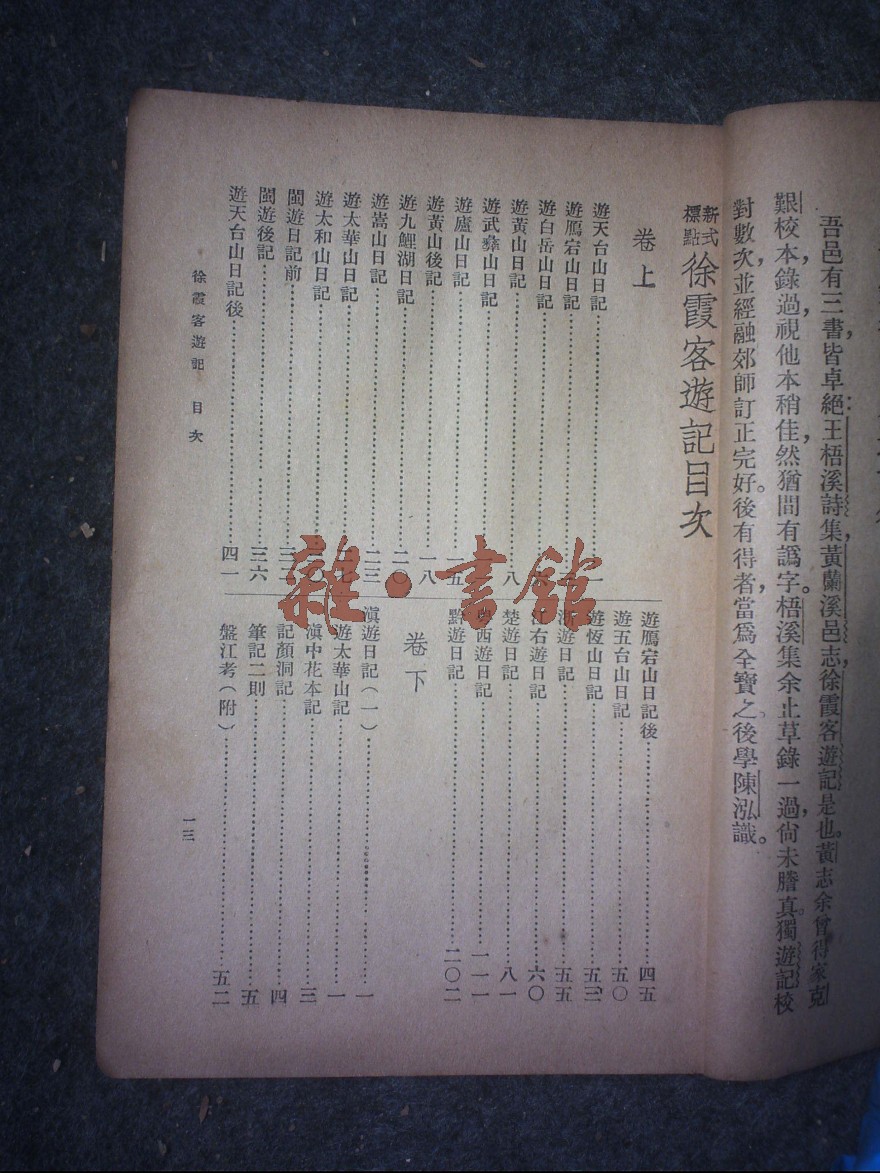 吾邑有三書,皆卓絕:王梧溪詩集,黃蘭溪邑志,徐霞客遊記是也。黃志余曾得家克
艱校本,錄過,視他本稍佳,然猶間有譌字。梧溪集余止草錄一過,尙未謄真。獨遊記校
對數次,並經融郊師訂正完好。後有得者,當爲全寶之。後學陳泓識。
新式標點徐霞客遊記目次
卷上
遊天台山日記……一
遊鴈宕山日記……
遊白岳山日記……
遊黃山日記……八
遊武彝山日記……
遊廬山日記……一五
遊黃山後記……一八
遊九鯉湖日記……二〇
遊嵩山日記……二三
遊太華山日記……
遊太和山日記……
閩遊日記前……
閩遊後記……三六
遊天台山日記後……四一
遊鴈宕山日記後……四五
遊五台山日記……五〇
遊恆山日記……五三
浙遊日記……五五
江右遊日記……六〇
楚遊日記……八一
粵西遊日記……一一一
黔遊日記……二〇二
卷下
滇遊日記(一)……一
遊太華山記……一
滇中花木記……三
記顏洞記……四
筆記二則……五
盤江考(附)……五二
徐霞客遊記 目次
一三
雜·書館